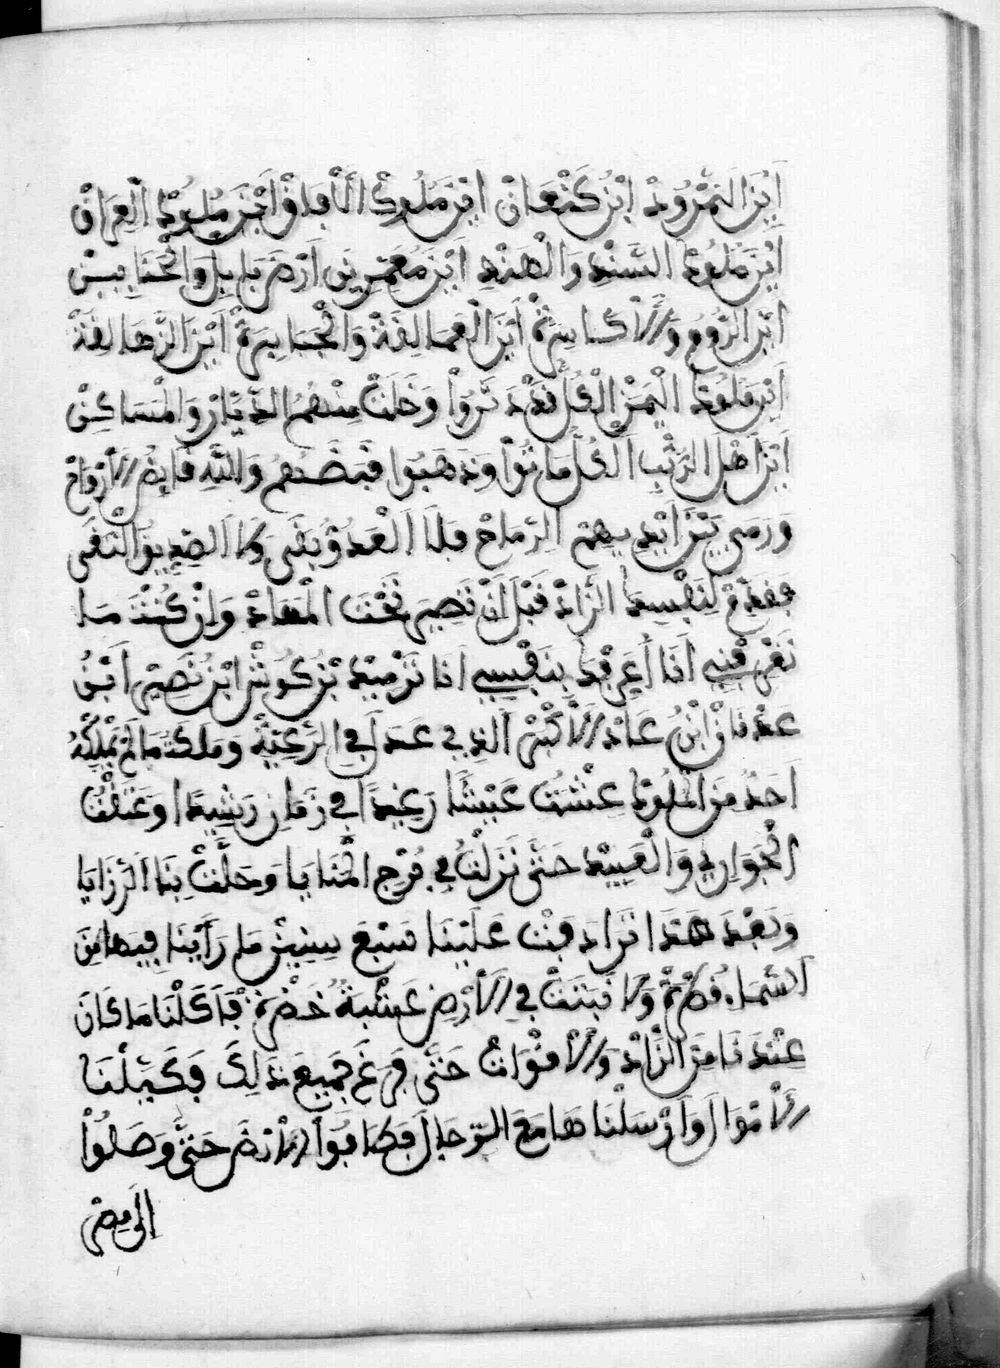 اَيْنَ النَّمْرُودْ اِبْنُ كَنْعَانْ اَيْنَ مُلُوكْ اَلْأَفَاقْ اَيْنَ مُلُوكُ الْعِرَاقْ
اَيْنَ مُلُوكُ السِّنْدِ وَالْهِنْدِ اَيْنَ مُعَمِّرِينَ اَرْضَ بَابِلِ وَالْحَبَابِيسْ
اَيْنَ الرُّومُ وَالْأَكَاسِرَةْ اَيْنَ الْعَمَالِقَةْ وَالْجَبَابِرَةْ اَيْنَ الزَّهَالِقَةْ
اَيْنَ مُلُوكُ الْيَمَنْ الْكُلُّ قَدْ دَثَّرُواْ وَخَلَتْ مِنْهُمُ الدِّيَارْ وَالْمَسَاكِنْ
اَيْنَ اَهْلُ الرُّتَبْ الْكُلُّ مَاتُواْ وَذَهَبُوا قَبَضَهُمْ وَاللَّهِ قَابِضُ الْأَرْوَاحْ
وَرَمَى بِهِمْ الرِّمَاحْ فَلَا الْعَدُوُّ بَقَى وَلَا الصَّدِيقُ الْتَقَى
فَقَدِّمْ لِنَفْسِكَ الزَّادْ قَبْلَ اَنْ تَصِيرَ تَحْتَ الْمِهَادْ وَاِنْ كُنْتَ مَا
تَعْرِفْنِي اَنَا أُعَرِّفُكَ بِنَفْسِي اَنَا تَدْمِيدَ بْنُ كُوشْ ابْنُ نَصِيرِ ابْنُ
عَدْنَانْ اِبْنُ عَادْ الْأَكْبَرْ الَّذِي عَدَلَ فِي الرَّعِيَّةْ وَمَلَكْتُ مَا لَمْ يَمْلِكْهُ
اَحَدٌ مِنَ الْمُلُوكْ عِشْتُ عَيْشًا رَغِيدًا فِي زَمَانٍ رَشِيدًا وَعَتَقْتُ
الْجَوَارِي وَالْعَبِيدْ حَتَّى نَزَلَتْ بِي فُرَجُ الْمَنَايَا وَحَلَّتْ بِنَا الرَّزَايَا
وَبَعْدَ هَذَا تَرَادَفَتْ عَلَيْنَا سَبْعَ سِنِينْ مَا رَأَيْنَا فِيهَا مِنَ
السَّمَاءِ قَطْرَةْ وَلَا نَبَتَتْ فِي الْأَرْضِ عَشْبَةْ خَضْرَةْ فَأَكَلْنَا مَا كَانَ
عِنْدَنَا مِنَ الزَّادْ وَالْأَقْوَاتْ حَتَّى فَرَغَ جَمِيعَ ذَلِكَ فَكَيَّلْنَا
الْأَمْوَالَ وَأَرْسَلْنَاهَا مَعَ الرِّجَالْ فَطَافُواْ الْأَرْضَ حَتَّى وَصَلُواْ
اِلَى مِصْرَ